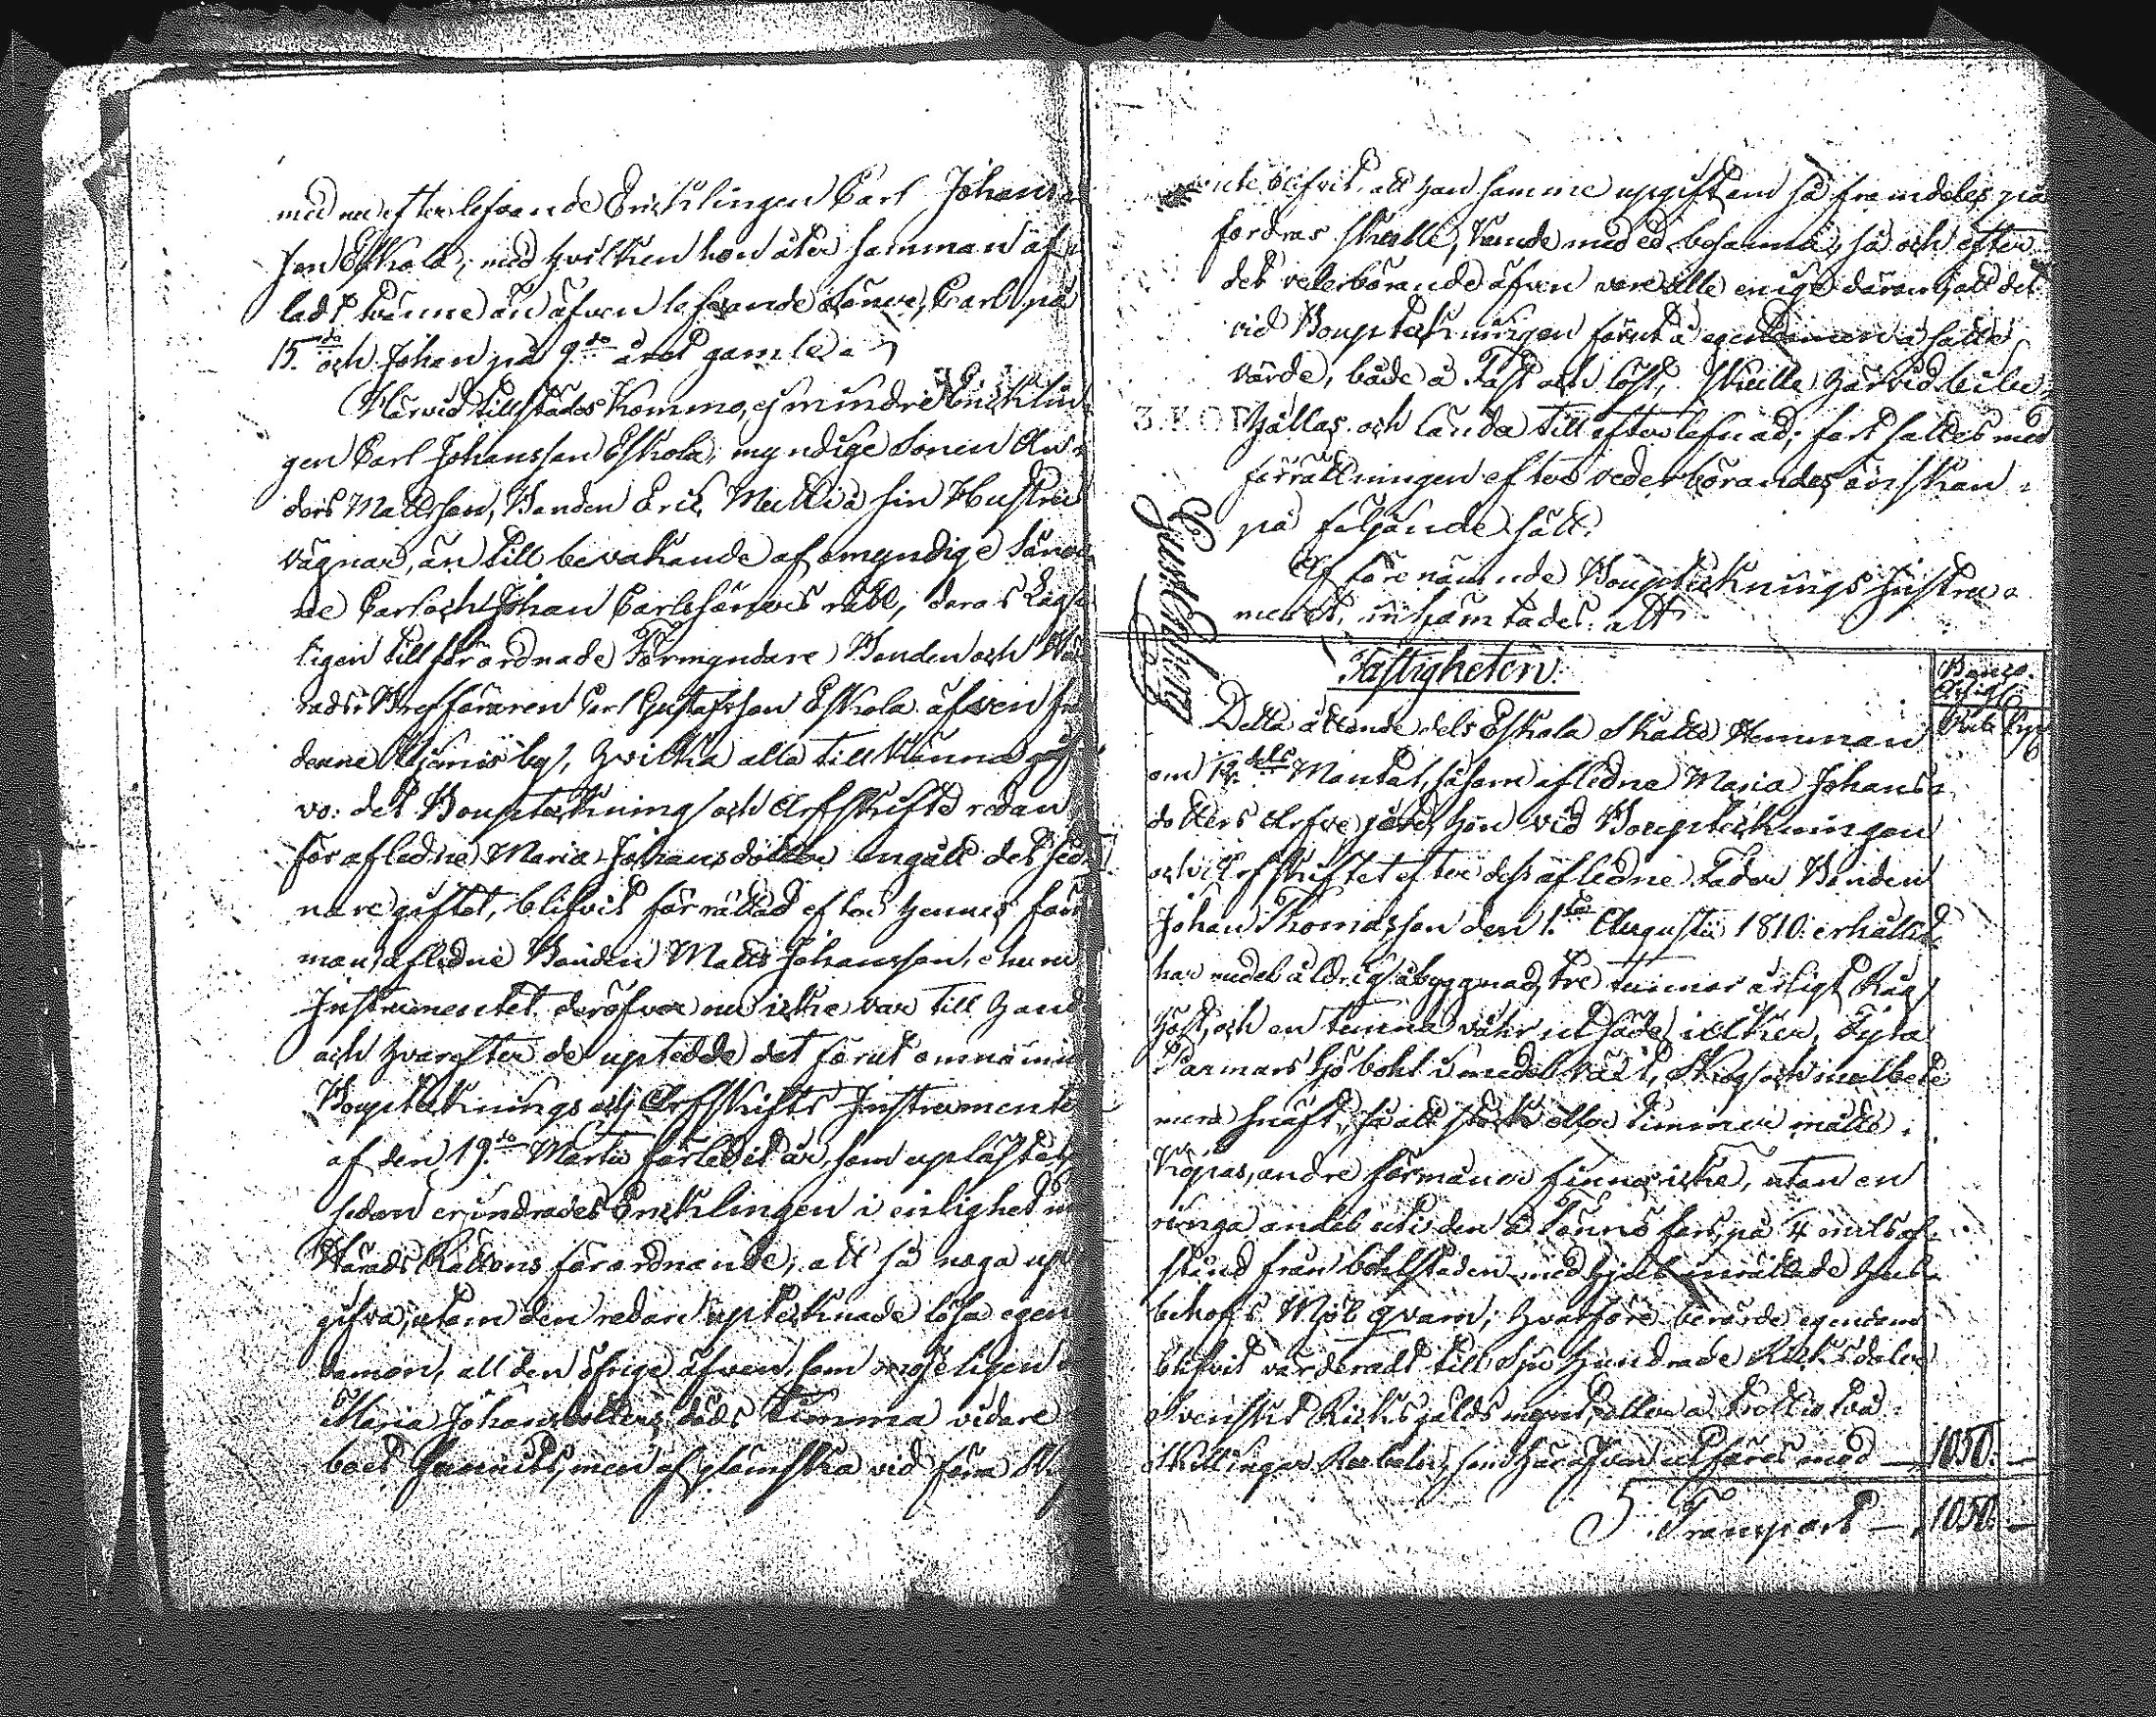 med nu efterlefvande Enchlingen Carl Johans
son Eskola, med hvilken hon åter samman af
ladt tvänne än äfven lefvande Söner, Carl på
15.de och Johan på 9.de året gamle
Härvid tillstädes kommo, ej mindre Enchlin
gen Carl Johansson Eskola, myndige Sonen An
ders Mattsson, Bonden Eric Mattis å sin Hustrus
vägnar, än till bevakande af omyndige Söner
ne Carl och Johan Carlssöners rätt, deras Lag
ligen tillförordnade Förmyndare Bonden och
Carl Gustafsson Eskola äfven ifrån
denne by, hvilka alla tillkänna
vo: det Bouptekning och Arfskifte redan
för afledne Maria Johansdotter ingått det sed
nare giftet, blifvit förrättad efter hennes förr
man, afledne Bonden Matts Johansson, ehuru
Instrumentet deröfver nu icke var till hand
och hvarefter de uptedde det förut omnämn
Bouptecknings och Arfskifts Instrumentet
af den 19.de Martii förledit år, som uplästes
sedan erindrades Enchlingen i enlighet m
Härads Rättens förordnande, att så noga up
gifva, utom den redan uptecknade lösa egen
domen, all den öfrige äfven, som
Maria Johansdotters döds timma vidare
boet funnits, men af glömska vid förra
blifvit, att han samme upgift, om så framdeles på
fordras skulle, kunde med ed besanna, så och efter
det vederbörande äfven vore alle enige därom, att det
vid Bouptekningen förut å egendomen åsatte
värde, både å fast och löst, skulle härvid
hållas och lända till efterlefnad; fortsattes med
förrättningen efter vederbörandes önskan
på följande sätt:
Af förenämnde Bouptecknings Instru
mentet, inhämtades: att
Fastigheten.
Banco
Rub
Detta åttonde dels Eskola Skatte Hemman
om dels Mantal, såsom afledne Maria Johans
dotters Arfve jord, hon vid Bouptekningen
och Arfskiftet efter dess afledne Fader Bonden
Johan Thomasson den 1.sta Augusti 1810 erhållit
har medelåldrig åbyggnad, tre tunnor årligt Råg
höst, och en tunna vår utsäde i åker, Fyra
Parmars höbohl i medel växt, Skog och mulbete
mera knaft, så att stock eller timmer måste
köpas, andre förmåner finnas icke, utan en
ringa andel uti den å Tönnö fors, på 4 mils af
stånd från bohlstaden med hjul inrättade hus
behofs Mjöl qvarn; hvarföre berörde egendom
blifvit värderadt till Sju Hundrade Riksdaler
Svenskt Riksgälds mynt, eller a Trettio två
Skillingar Rubeln, som häröfver utföres med — 1050. —
Transport — 1050. —